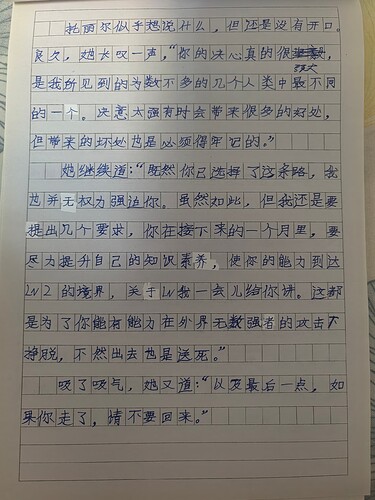 托丽尔似乎想说什么，但还是没有开口。
良久，她长叹一声，“你的决心真的很强大，
是我所见到的为数不多的几个人类中最不同
的一个。决意太强有时会带来很多的好处，
但带来的坏处也是必须得牢记的。”
她继续道：“既然你已选择了这条路，我
也并无权力强迫你。虽然如此，但我还是要
提出几个要求，你在接下来的一个月里，要
尽力提升自己的知识素养，使你的能力到达
LV2的境界，关于LV我一会儿给你讲。这都
是为了你能有能力在外界无数强者的攻击下
挣脱，不然出去也是送死。”
吸了吸气，她又道：“以及最后一点，如
果你走了，请不要回来。”